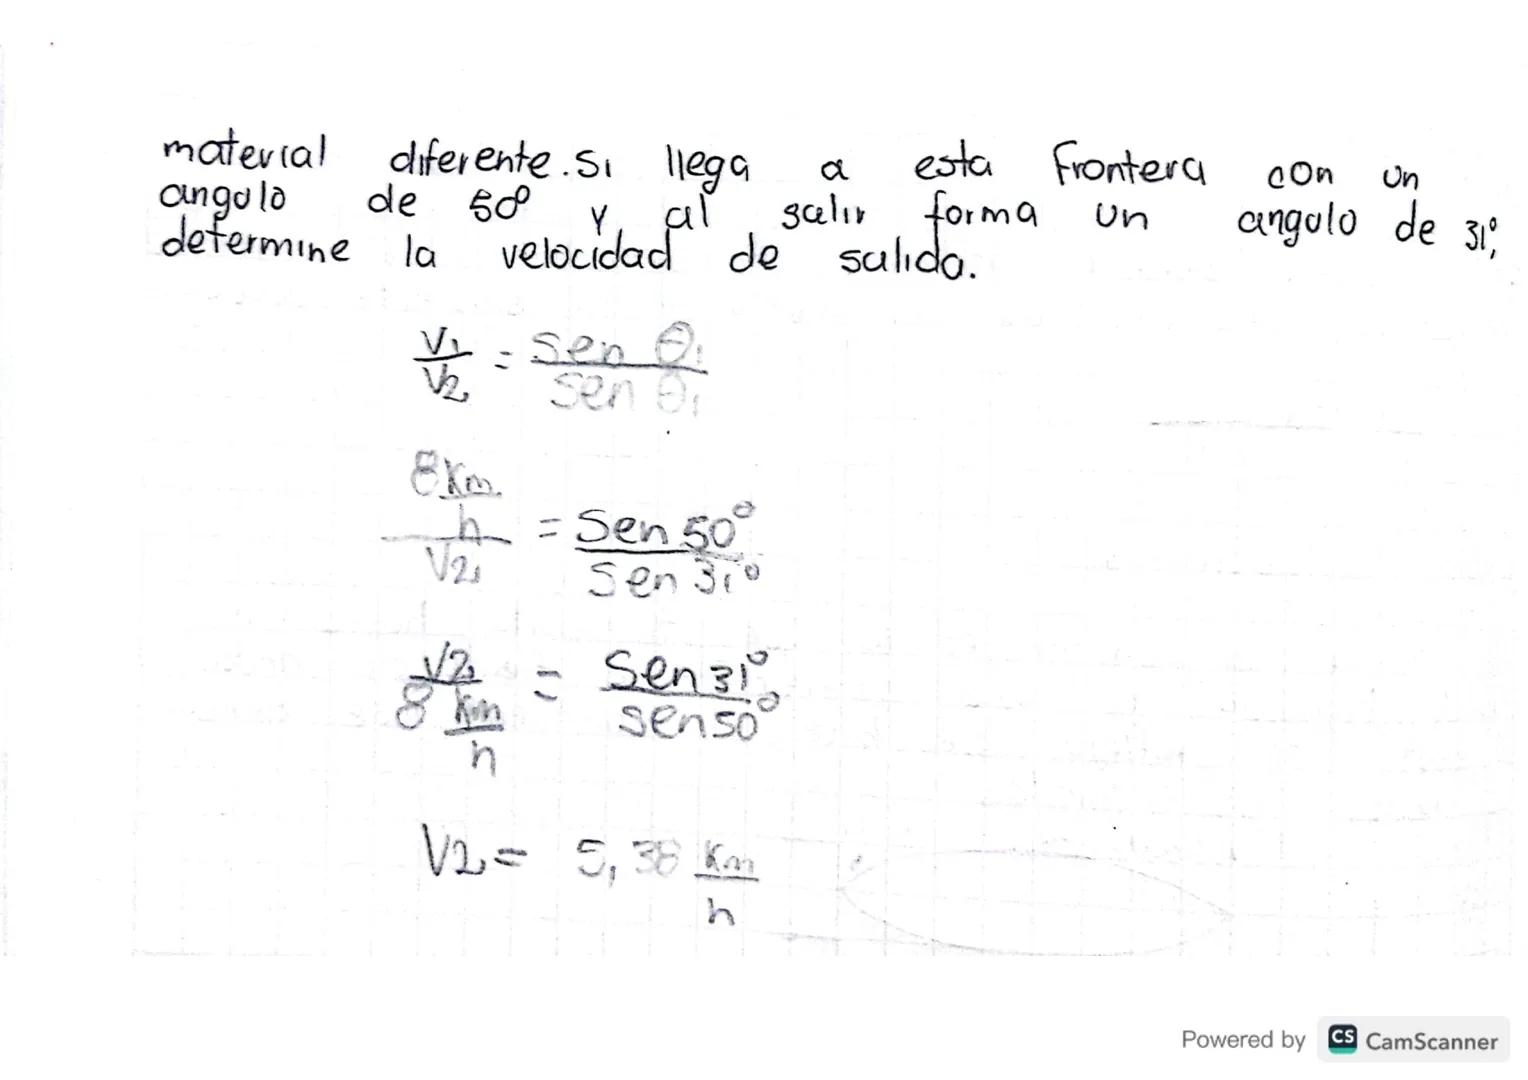 material diferente. Si llega a esta Frontera con un
angulo de 50° y al salir forma un angulo de 31°,
determine la velocidad de salida.
V1/V2 = Sen θ1/Sen θ1
8 Km/h/V2 = Sen 50°/Sen 31°
V2/8 Km/h = Sen 31°/Sen 50°
V2 = 5,38 Km/h
Powered by CS CamScanner